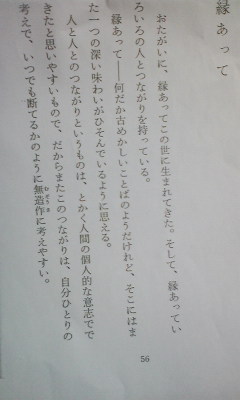 縁あって
おたがいに、縁あってこの世に生まれてきた。そして、縁あってい
ろいろの人とつながりを持っている。
縁あって――何だか古めかしいことばのようだけれど、そこにはま
た一つの深い味わいがひそんでいるように思える。
人と人とのつながりというものは、とかく人間の個人的な意志でで
きたと思いやすいもので、だからまたこのつながりは、自分ひとりの
考えで、いつでも断てるかのように無造作に考えやすい。
むぞうさ
56